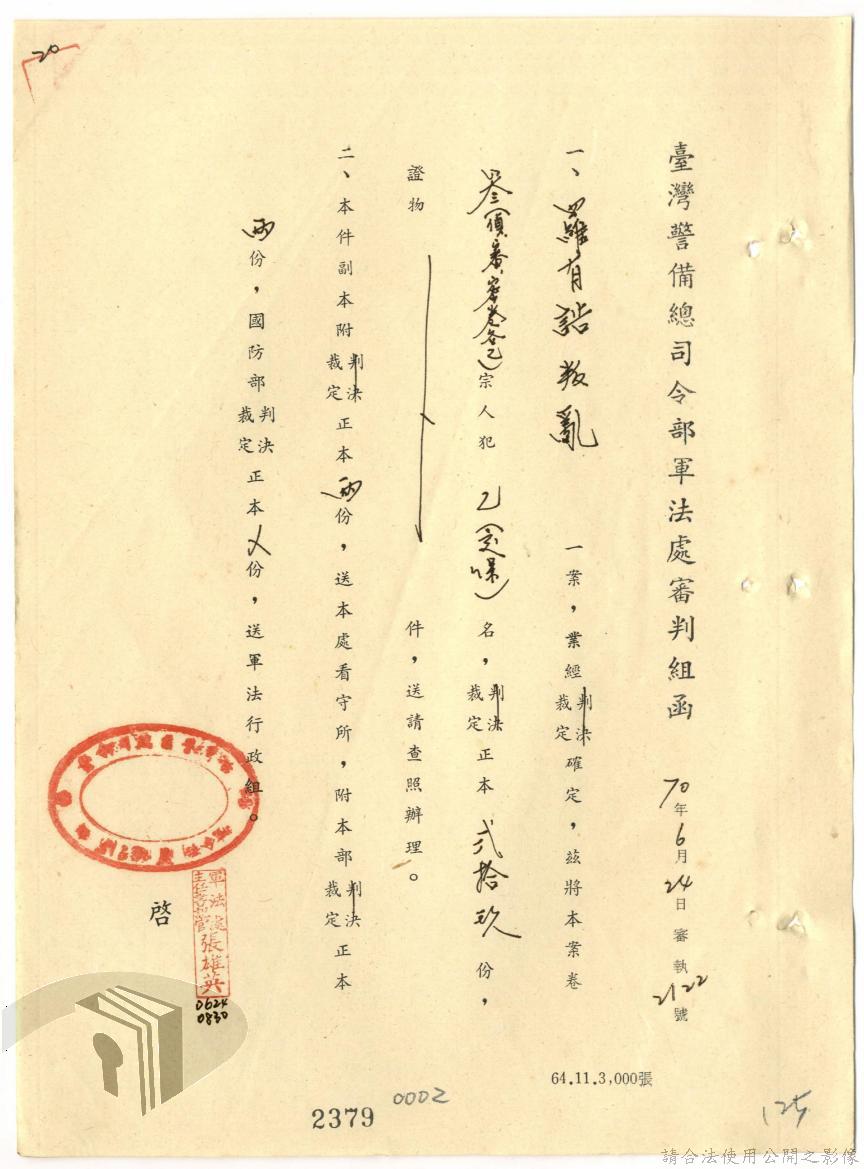 20
臺灣警備總司令部軍法處審判組函
70年6月24日審執2122號
一、羅有誥叛亂 一案,業經判決裁定確定,茲將本案卷
叁(偵、審、
宗人犯 乙 名,判決裁定正本 弍拾玖 份,
證物 件,送請查照辦理。
二、本件副本附判決裁定正本 兩 份,送本處看守所,附本部判決裁定正本
兩份,國防部判決裁定正本 份,送軍法行政組。
啓
軍法處
主任審判官
張雄英
0624
0830
64.11.3,000張
2379
0002
125
請合法使用公開之影像